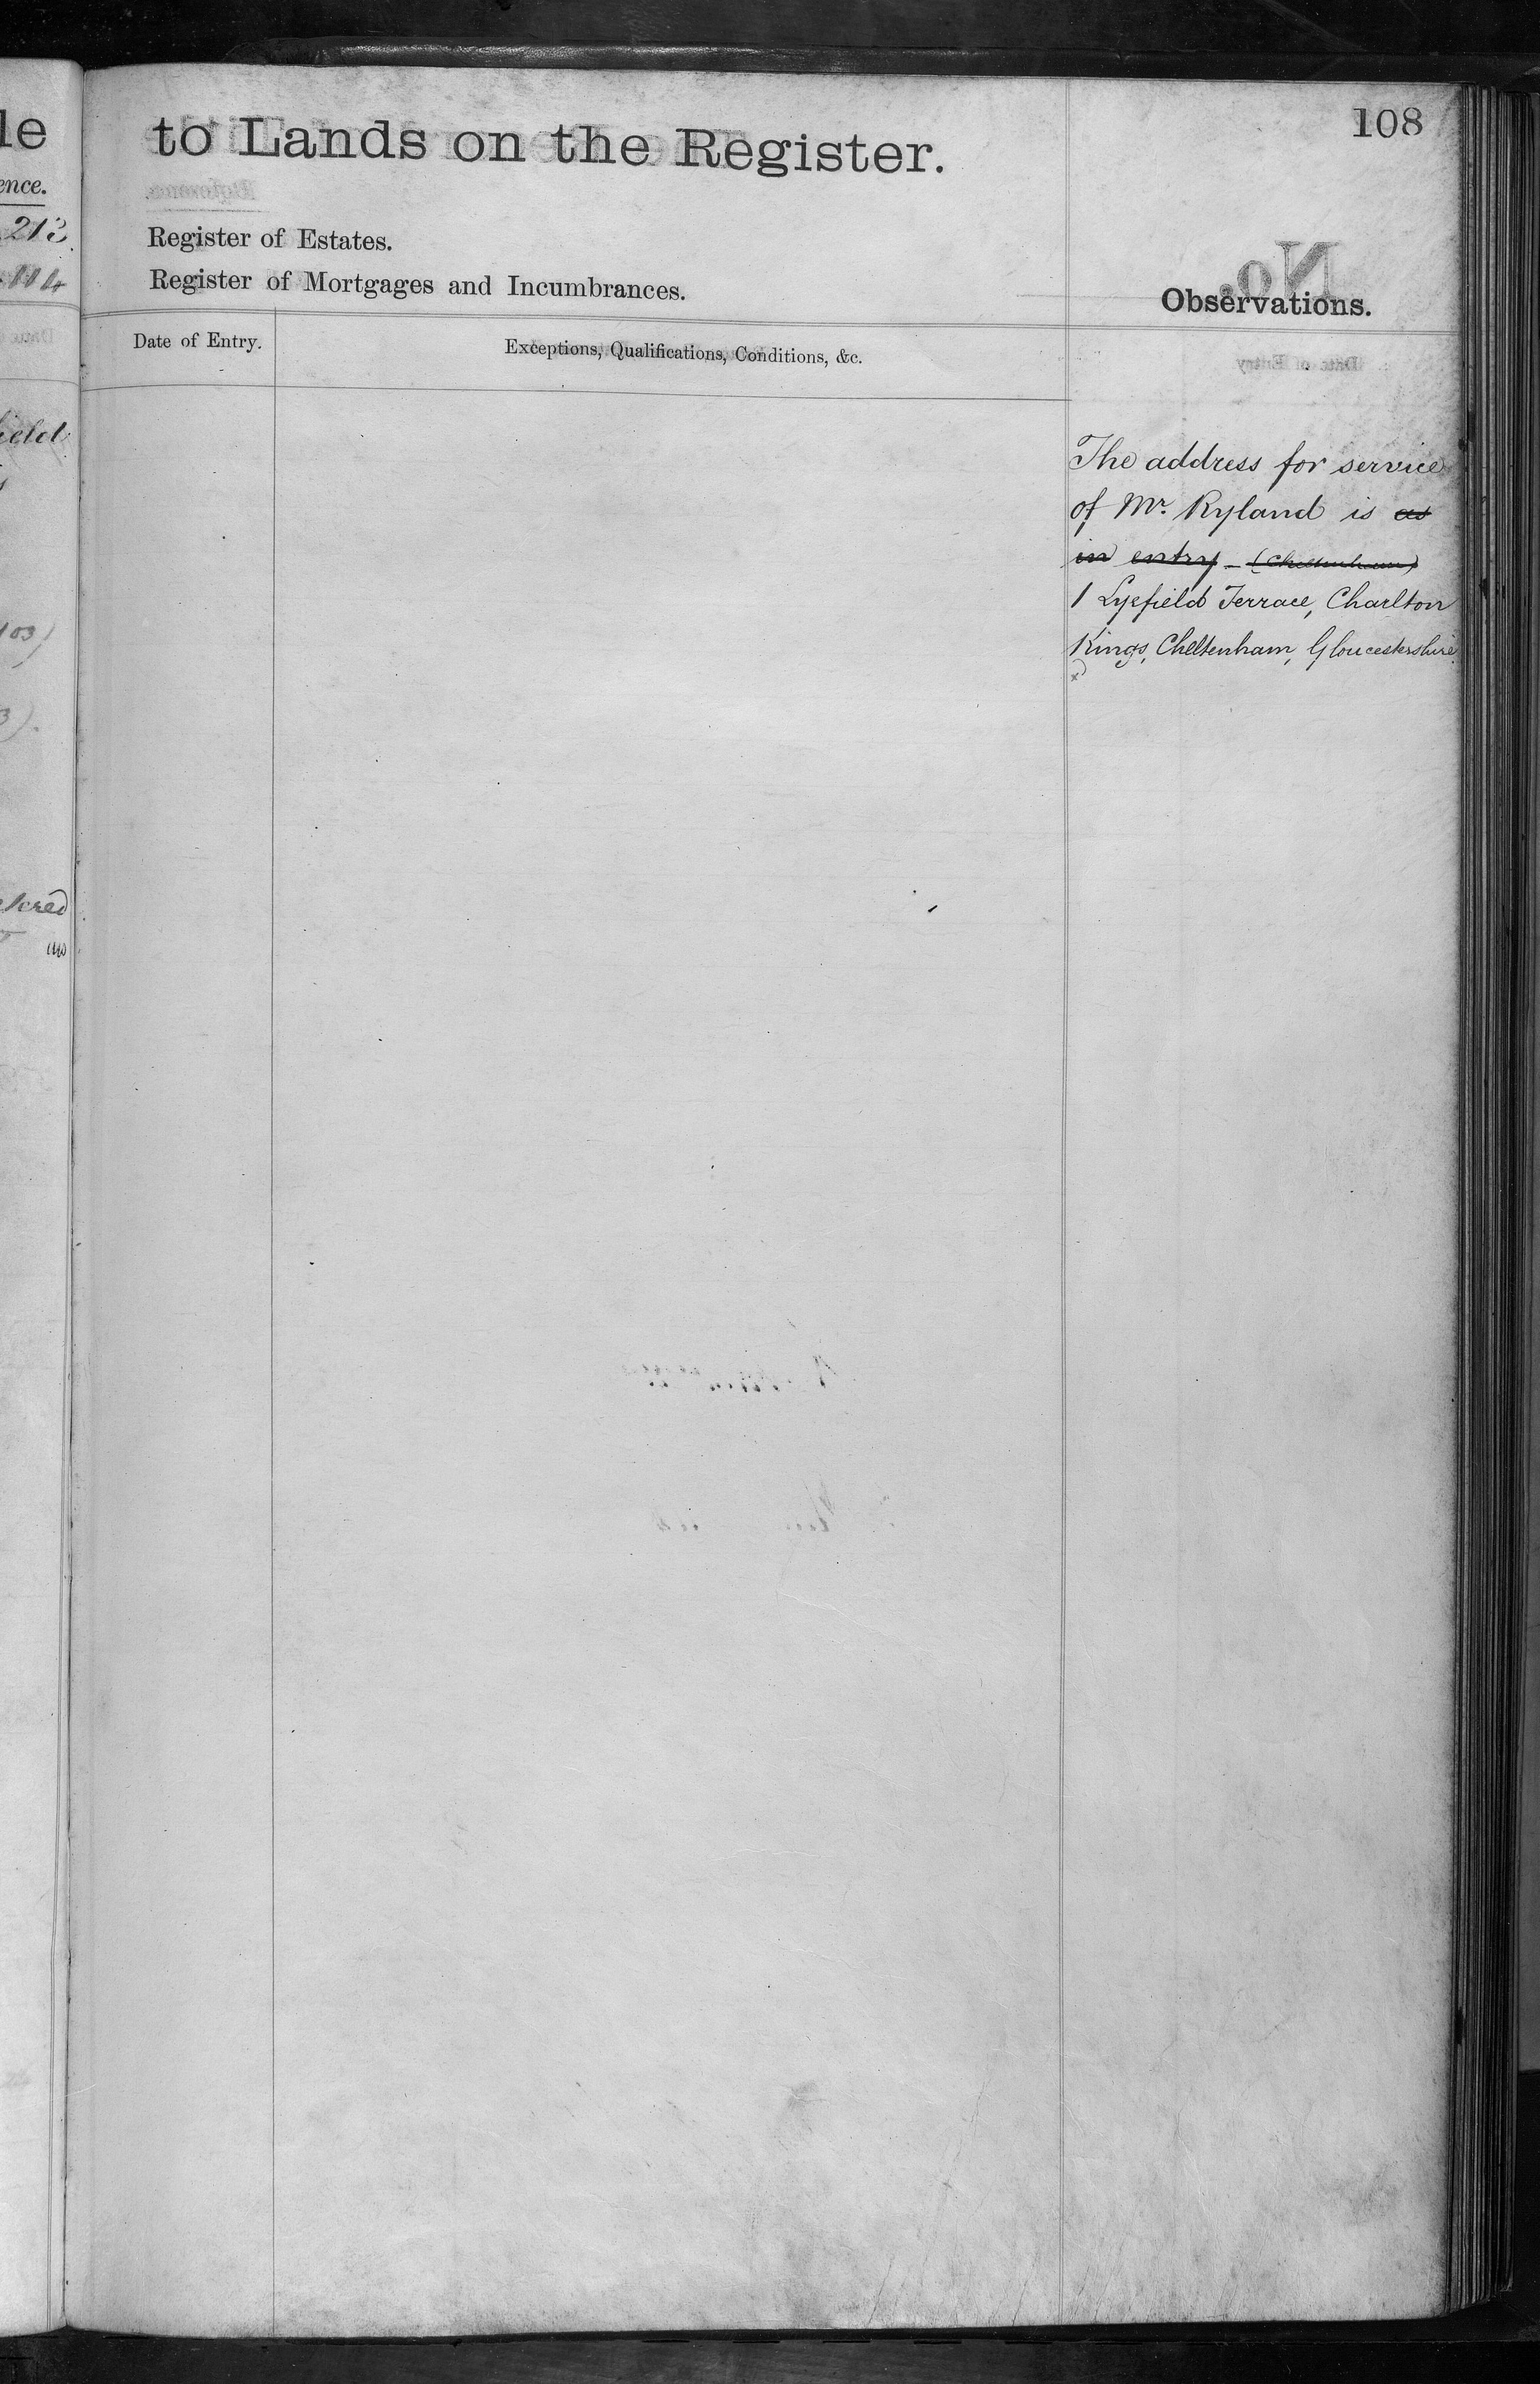 108
to Lands on the Register.
Register of Estates.
Register of Mortgages and Incumbrances.
Observations.
Date of Entry.
Exceptions, Qualifications, Conditions, &c.
The address for service
of Mr. Ryland is as
in entry - (Cheltenham)
1 Lyefield Terrace, Charlton
Kings, Cheltenham, Gloucestershire
le
ence.
213
114
ield
103)
3).